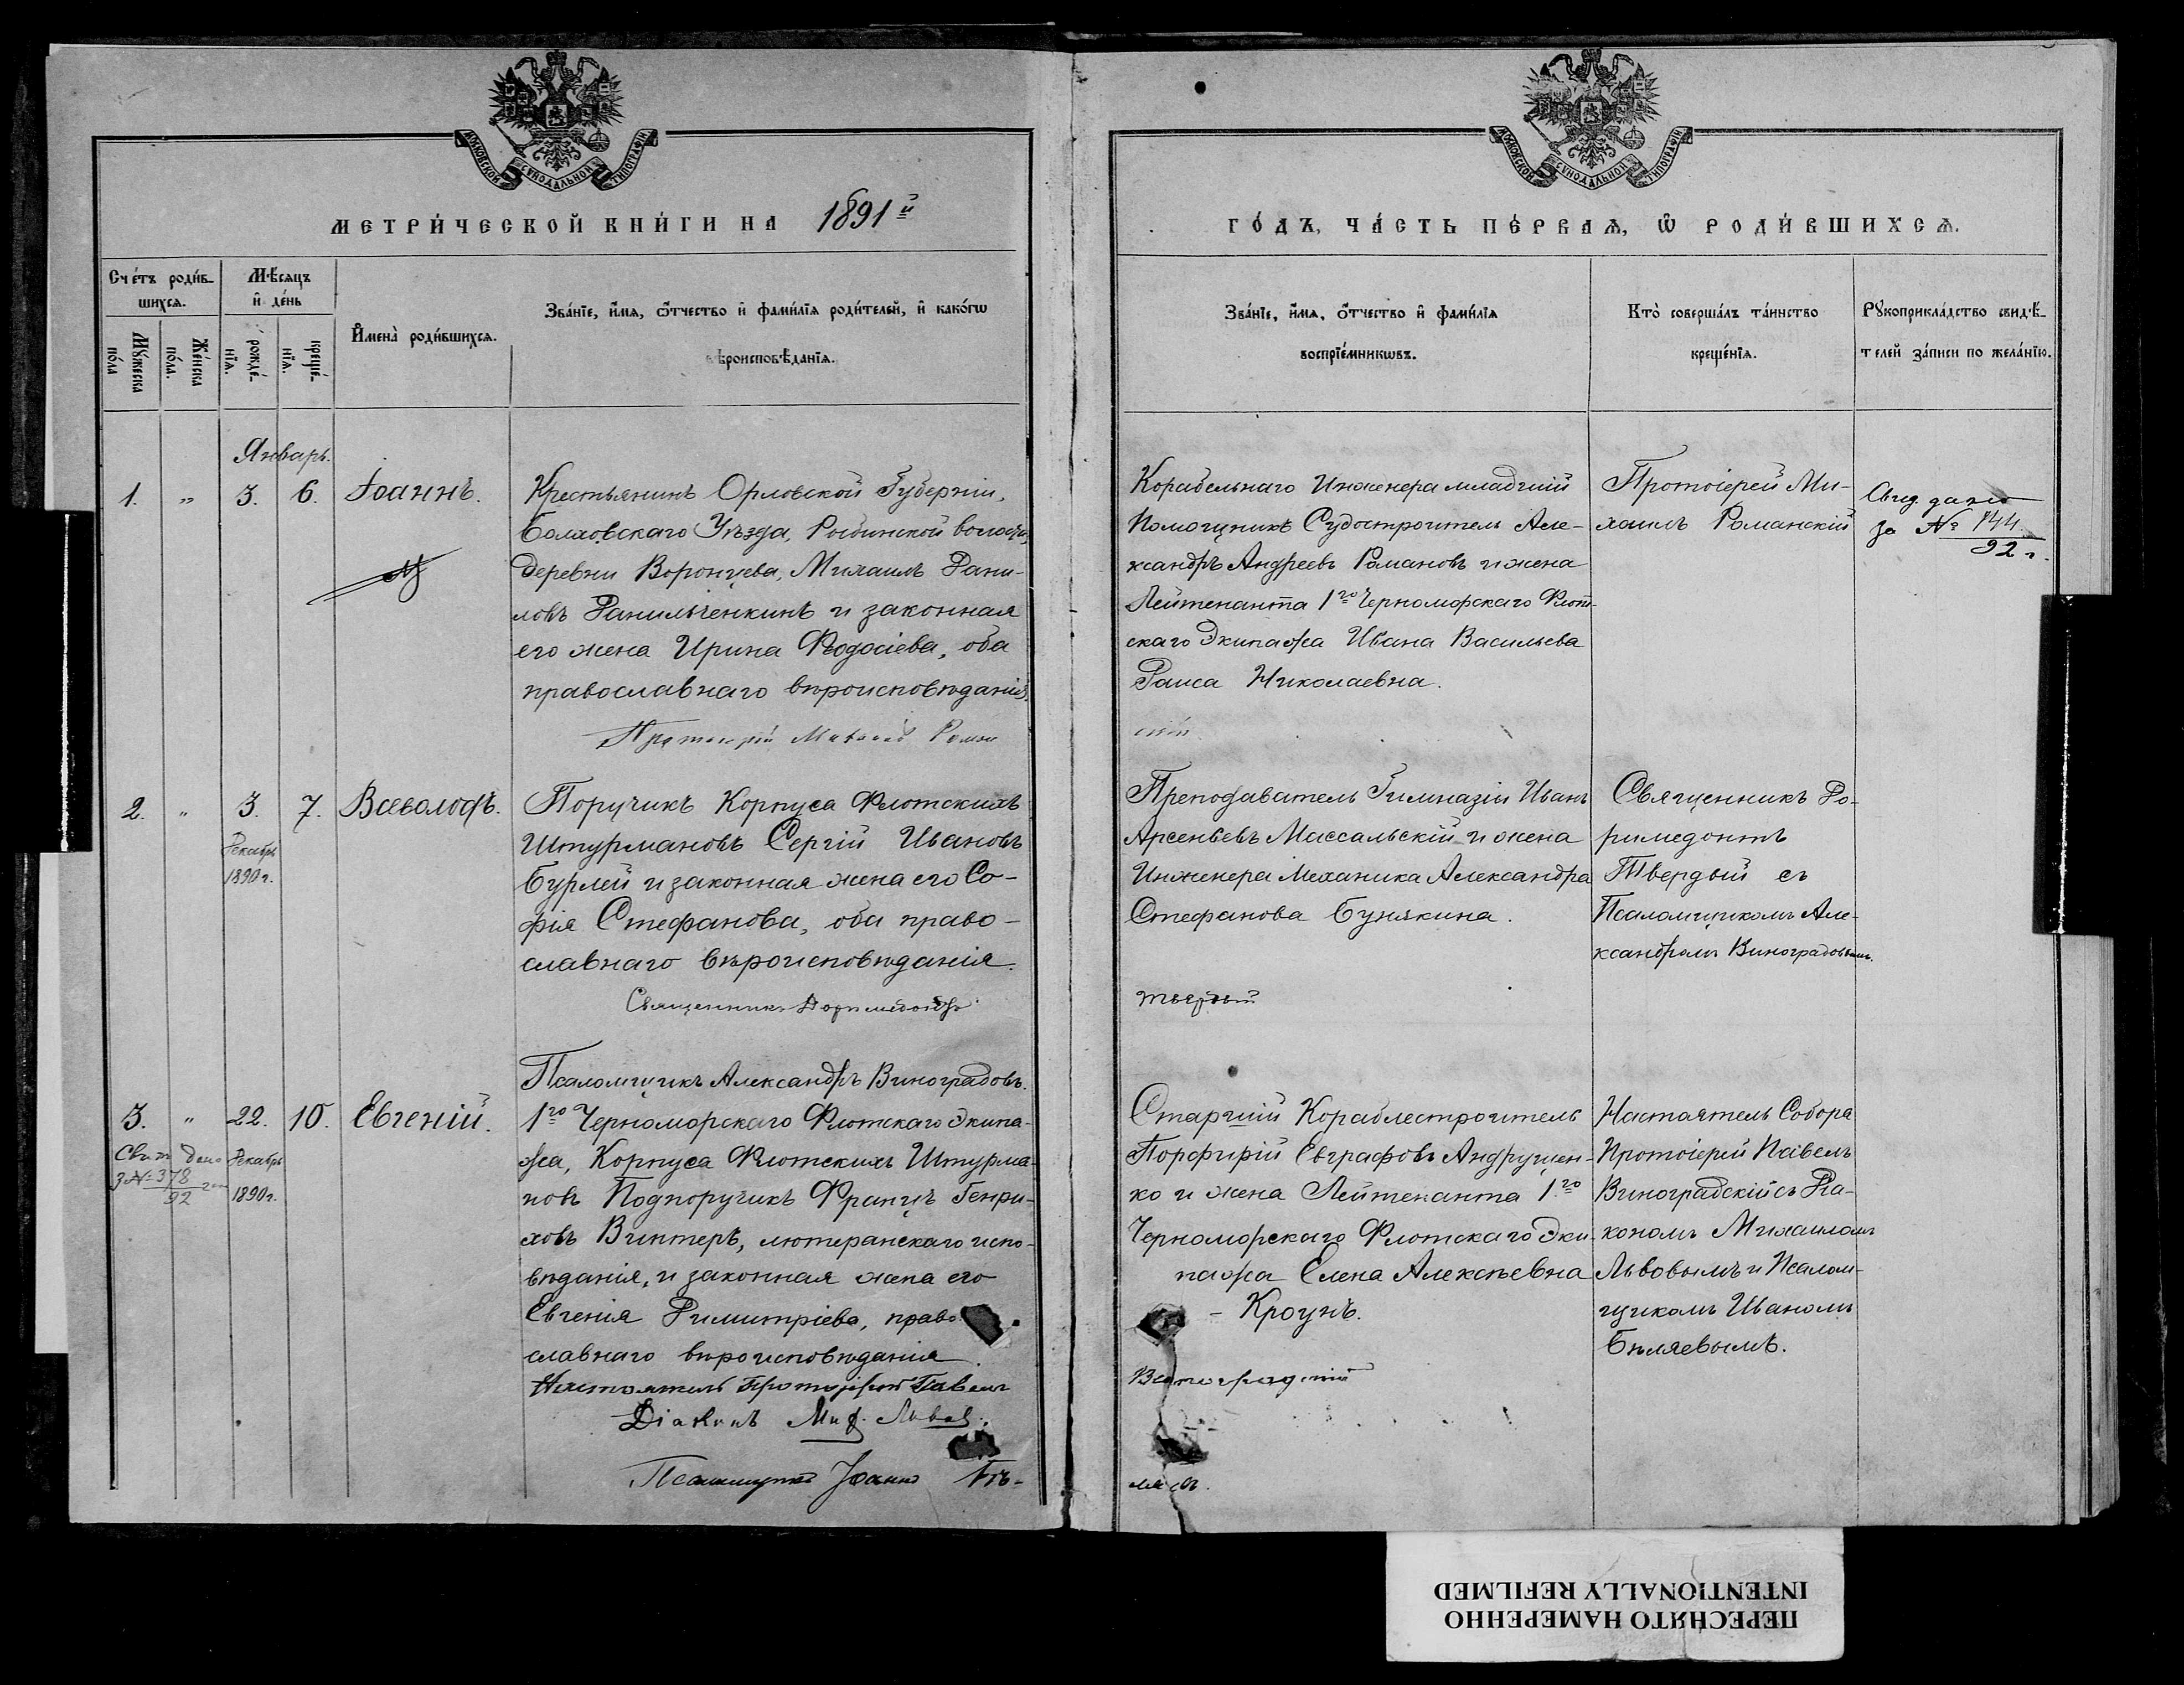 МОСКОВСКОЙ СѴНОДАЛЬНОЙ ТИПОГРАФІИ
МЕТРИ́ЧЕСКОЙ КНИ́ГИ НА 1891й
Сче́тъ роди́вшихся.
Мꙋ́жеска по́ла
Же́нска по́ла.
Мѣ́сяцъ и де́нь
рожде́нїя.
креще́нїя.
Имена̀ роди́вшихся.
Зва́нїе, и́мя, ѻ́тчество и фами́лїя роди́телей, и како́гѡ
вѣроисповѣ́данїя.
Январь.
1. " 3. 6. Іоаннъ.
Крестьянинъ Орловской Губерніи,
Болховскаго Уѣзда, волости,
деревни Воронцева, Михаилъ Дани-
ловъ Данильченкинъ и законная
его жена Ирина Ѳеодосіева, оба
православнаго вѣроисповѣданія.
Протоіерей Михаилъ Роман
2. " 3. 7. Всеволодъ.
Декабрь
1890 г.
Поручикъ Корпуса Флотскихъ
Штурмановъ Сергій Ивановъ
Бурлей и законная жена его Со-
фія Стефанова, оба право-
славнаго вѣроисповѣданія.
Священникъ Доримедонтъ
Псаломщикъ Александръ Виноградовъ.
3. " 22. 10. Евгеній.
Свид. дано
з № 378
92
Декабрь
1890 г.
1го Черноморскаго Флотскаго Экипа-
жа, Корпуса Флотскихъ Штурма-
новъ Подпоручикъ Францъ Генри-
ховъ Винтеръ, лютеранскаго испо-
вѣданія, и законная жена его
Евгенія Димитріева, право
славнаго вѣроисповѣданія.
Настоятель Протоіерей Павелъ
Діаконъ Мих. Львов.
Псаломщикъ Іоаннъ Бѣ-
МОСКОВСКОЙ СѴНОДАЛЬНОЙ ТИПОГРАФІИ
ГО́ДЪ, ЧА́СТЬ ПЕ́РВАѦ, Ѡ РОДИ́ВШИХСѦ.
Зва́нїе, и́мя, ѻ́тчество и фами́лїя
воспрїе́мникѡвъ.
Кто̀ соверша́лъ та́инство
креще́нїя.
Рꙋкоприкла́дство свидѣ́-
телей за́писи по жела́нїю.
Корабельнаго Инженера младшій
Помощникъ Судостроитель Але-
ксандръ Андреевъ Романовъ и жена
Лейтенанта 1го Черноморскаго Флот-
скаго Экипажа Ивана Васильева
Раиса Николаевна.
скій
Протоіерей Ми-
хаилъ Романскій
Свид дано
за № 144
92 г.
Преподаватель Гимназіи Иванъ
Арсеньевъ Массальскій и жена
Инженера Механика Александра
Стефанова Бунякина.
Твердый
Священникъ До-
римедонтъ
Твердый съ
Псаломщикомъ Але-
ксандромъ Виноградовымъ.
Старшій Кораблестроитель
Порфирій Евграфовъ Андрущен-
ко и жена Лейтенанта 1го
Черноморскаго Флотскаго Эки-
пажа Елена Алексѣевна
- Кроунъ.
Виноградскій
ляевъ.
Настоятель Собора
Протоіерей Павелъ
Виноградскій съ Діа-
кономъ Михаиломъ
Львовымъ и Псалом-
щикомъ Иваномъ
Бѣляевымъ.
ПЕРЕСНЯТО НАМЕРЕННО
INTENTIONALLY REFILMED